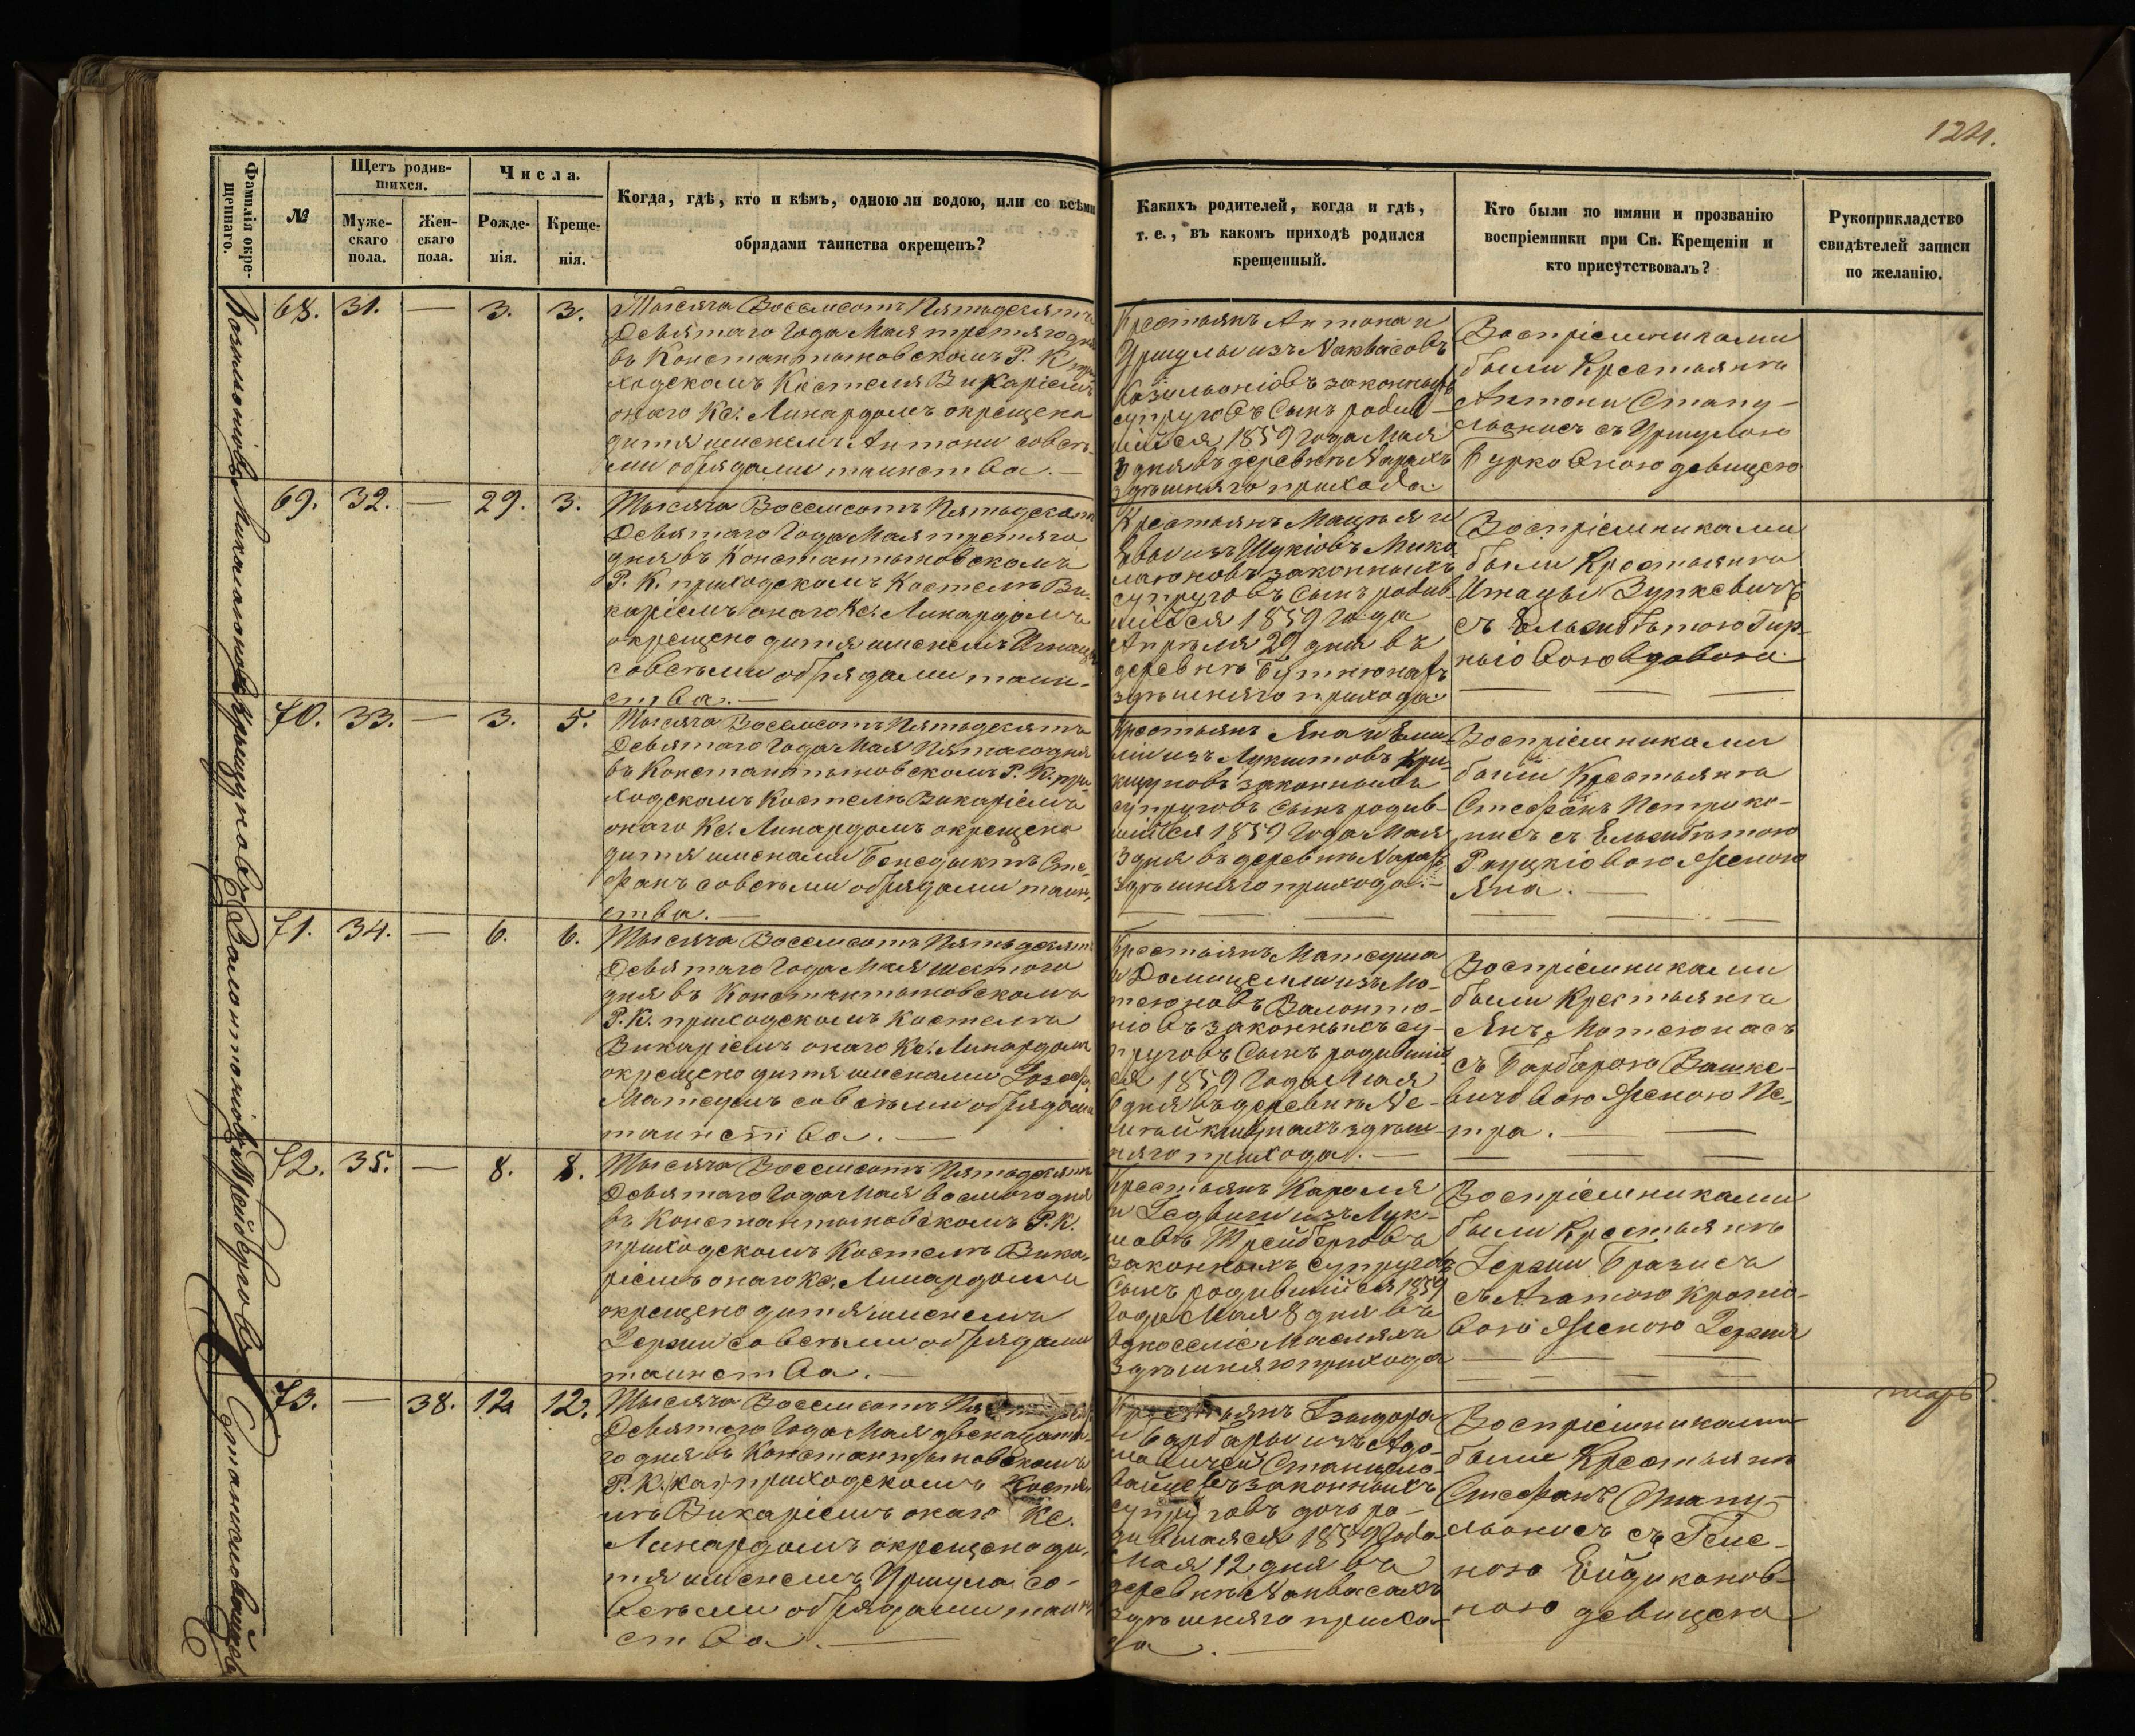 124.
Фамилія окре-
щеннаго.
№
Щетъ родив-
шихся.
Муже-
скаго
пола.
Жен-
скаго
пола.
Числа.
Рожде-
нія.
Креще-
нія.
Когда, гдѣ, кто и кѣмъ, одною ли водою, или со всѣми
обрядами таинства окрещенъ?
Какихъ родителей, когда и гдѣ,
т. е., въ какомъ приходѣ родился
крещенный.
Кто были по имяни и прозванію
воспріемники при Св. Крещеніи и
кто присутствовалъ?
Рукоприкладство
свидѣтелей записи
по желанію.
68. 31. — 3. 3.
Тысяча Восемсотъ Пятьдесятъ
Девятаго Года Мая третяго дня
въ Константыновскомъ Р. К. при
ходскомъ Костеля Викаріемъ
онаго Кс. Линардомъ окрещено
дитя именемъ Антони совсѣ-
ми обрядами таинства. —
Крестьянъ Антона и
Уршули изъ Наквасовъ
законныхъ
супруговъ Сынъ родив-
шійся 1859 Года Мая
3 дня въ деревнѣ
здѣшняго прихода.
Воспріемниками
были Крестьянѣ
Антони Стану-
льонисъ съ Уршулою
Бурковною девицею
69. 32. — 29. 3.
Тысяча Восемсотъ Пятьдесятъ
Девятаго Года Мая третяго
дня въ Константыновскомъ
Р. К. приходскомъ Костелѣ Ви-
каріемъ онаго Кс. Линардомъ
окрещено дитя именемъ Игнацы
совсѣми обрядами таин-
ства. —
Крестьянъ Мацѣя и
Евы изъ Шукіовъ Мико
лаюновъ законныхъ
супруговъ Сынъ родив
шійся 1859 Года
Апрѣля 29 дня въ
деревнѣ Бутнюнахъ
здѣшняго прихода.
Воспріемниками
были Крестьянѣ
Игнацы Зункевичъ
съ Ельжбѣтою Гир-
ніовою вдовою
70. 33. — 3. 5.
Тысяча Восемсотъ Пятьдесятъ
Девятаго Года Мая Пятаго дня
въ Константыновскомъ Р. К. при-
ходскомъ Костелѣ Викаріемъ
онаго Кс. Линардомъ окрещено
дитя именами Бенедыктъ Сте-
фанъ совсѣми обрядами таин-
ства. —
Крестьянъ Яна и Еми-
ліи изъ Лукштовъ Кри-
щуновъ законныхъ
супруговъ Сынъ родив-
шійся 1859 Года Мая
3 дня въ деревнѣ
здѣшняго прихода. —
Воспріемниками
были Крестьянѣ
Стефанъ Петрико-
нисъ съ Ельжбѣтою
женою
Яна. —
71. 34. — 6. 6.
Тысяча Восемсотъ Пятьдесятъ
Девятаго Года Мая шестого
дня въ Константыновскомъ
Р. К. приходскомъ Костелѣ
Викаріемъ онаго Кс. Линардомъ
окрещено дитя именами Іозефъ
Матеушъ совсѣми обрядами
таинства. —
Крестьянъ Матеуша
и Домицелли изъ Мо-
теюновъ Валонто-
ніовъ законныхъ су-
пруговъ Сынъ родившій
ся 1859 Года Мая
6 дня въ деревнѣ
здѣш-
няго прихода. —
Воспріемниками
были Крестьянѣ
Янъ Мотеюнасъ
съ Барбарою Вашке-
вичовою женою Пе-
тра. —
72. 35. — 8. 8.
Тысяча Восемсотъ Пятьдесятъ
Девятаго Года Мая восмого дня
въ Константыновскомъ Р. К.
приходскомъ Костелѣ Вика-
ріемъ онаго Кс. Линардомъ
окрещено дитя именемъ
Іержи совсѣми обрядами
таинства. —
Крестьянъ Кароля
и Іедвиги изъ Лук-
шовъ Трейберговъ
законныхъ супруговъ
Сынъ родившійся 1859
Года Мая 8 дня въ
здѣшняго прихода
Воспріемниками
были Крестьянѣ
Іержи Бразисъ
съ Агатою
женою Іержія
73. — 38. 12. 12.
Тысяча Восемсотъ
Девятаго Года Мая двенадцата-
го дня въ Константыновскомъ
Р. К. приходскомъ Косте
лѣ Викаріемъ онаго Кс.
Линардомъ окрещено ди-
тя именемъ Уршула со-
всѣми обрядами таин
ства. —
Крестьянъ Изыдора
и Барбары изъ Адо-
законныхъ
супруговъ дочь ро-
дившаяся 1859 Года
Мая 12 дня въ
деревнѣ Наквасахъ
здѣшняго прихо-
да. —
Воспріемниками
были Крестьянѣ
Стефанъ Стану-
льонисъ съ Геле-
ною
ною девицею